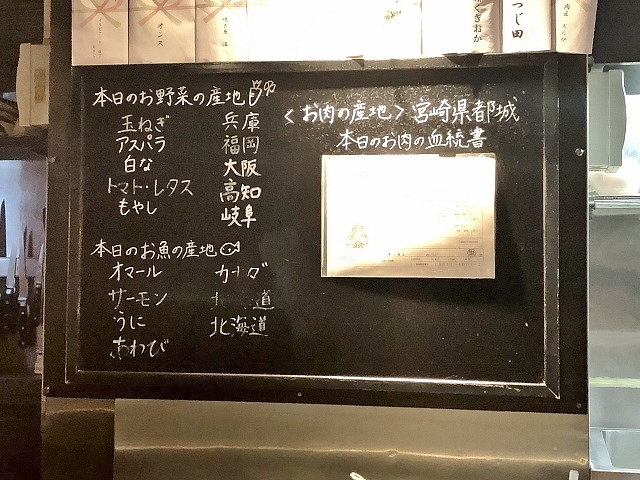 本日のお野菜の産地
玉ねぎ 兵庫
アスパラ 福岡
白な 大阪
トマト・レタス 高知
もやし 岐阜
本日のお魚の産地
オマール
サーモン 道
うに 北海道
あわび
〈お肉の産地〉宮崎県都城
本日のお肉の血統書
オンス
つじ田